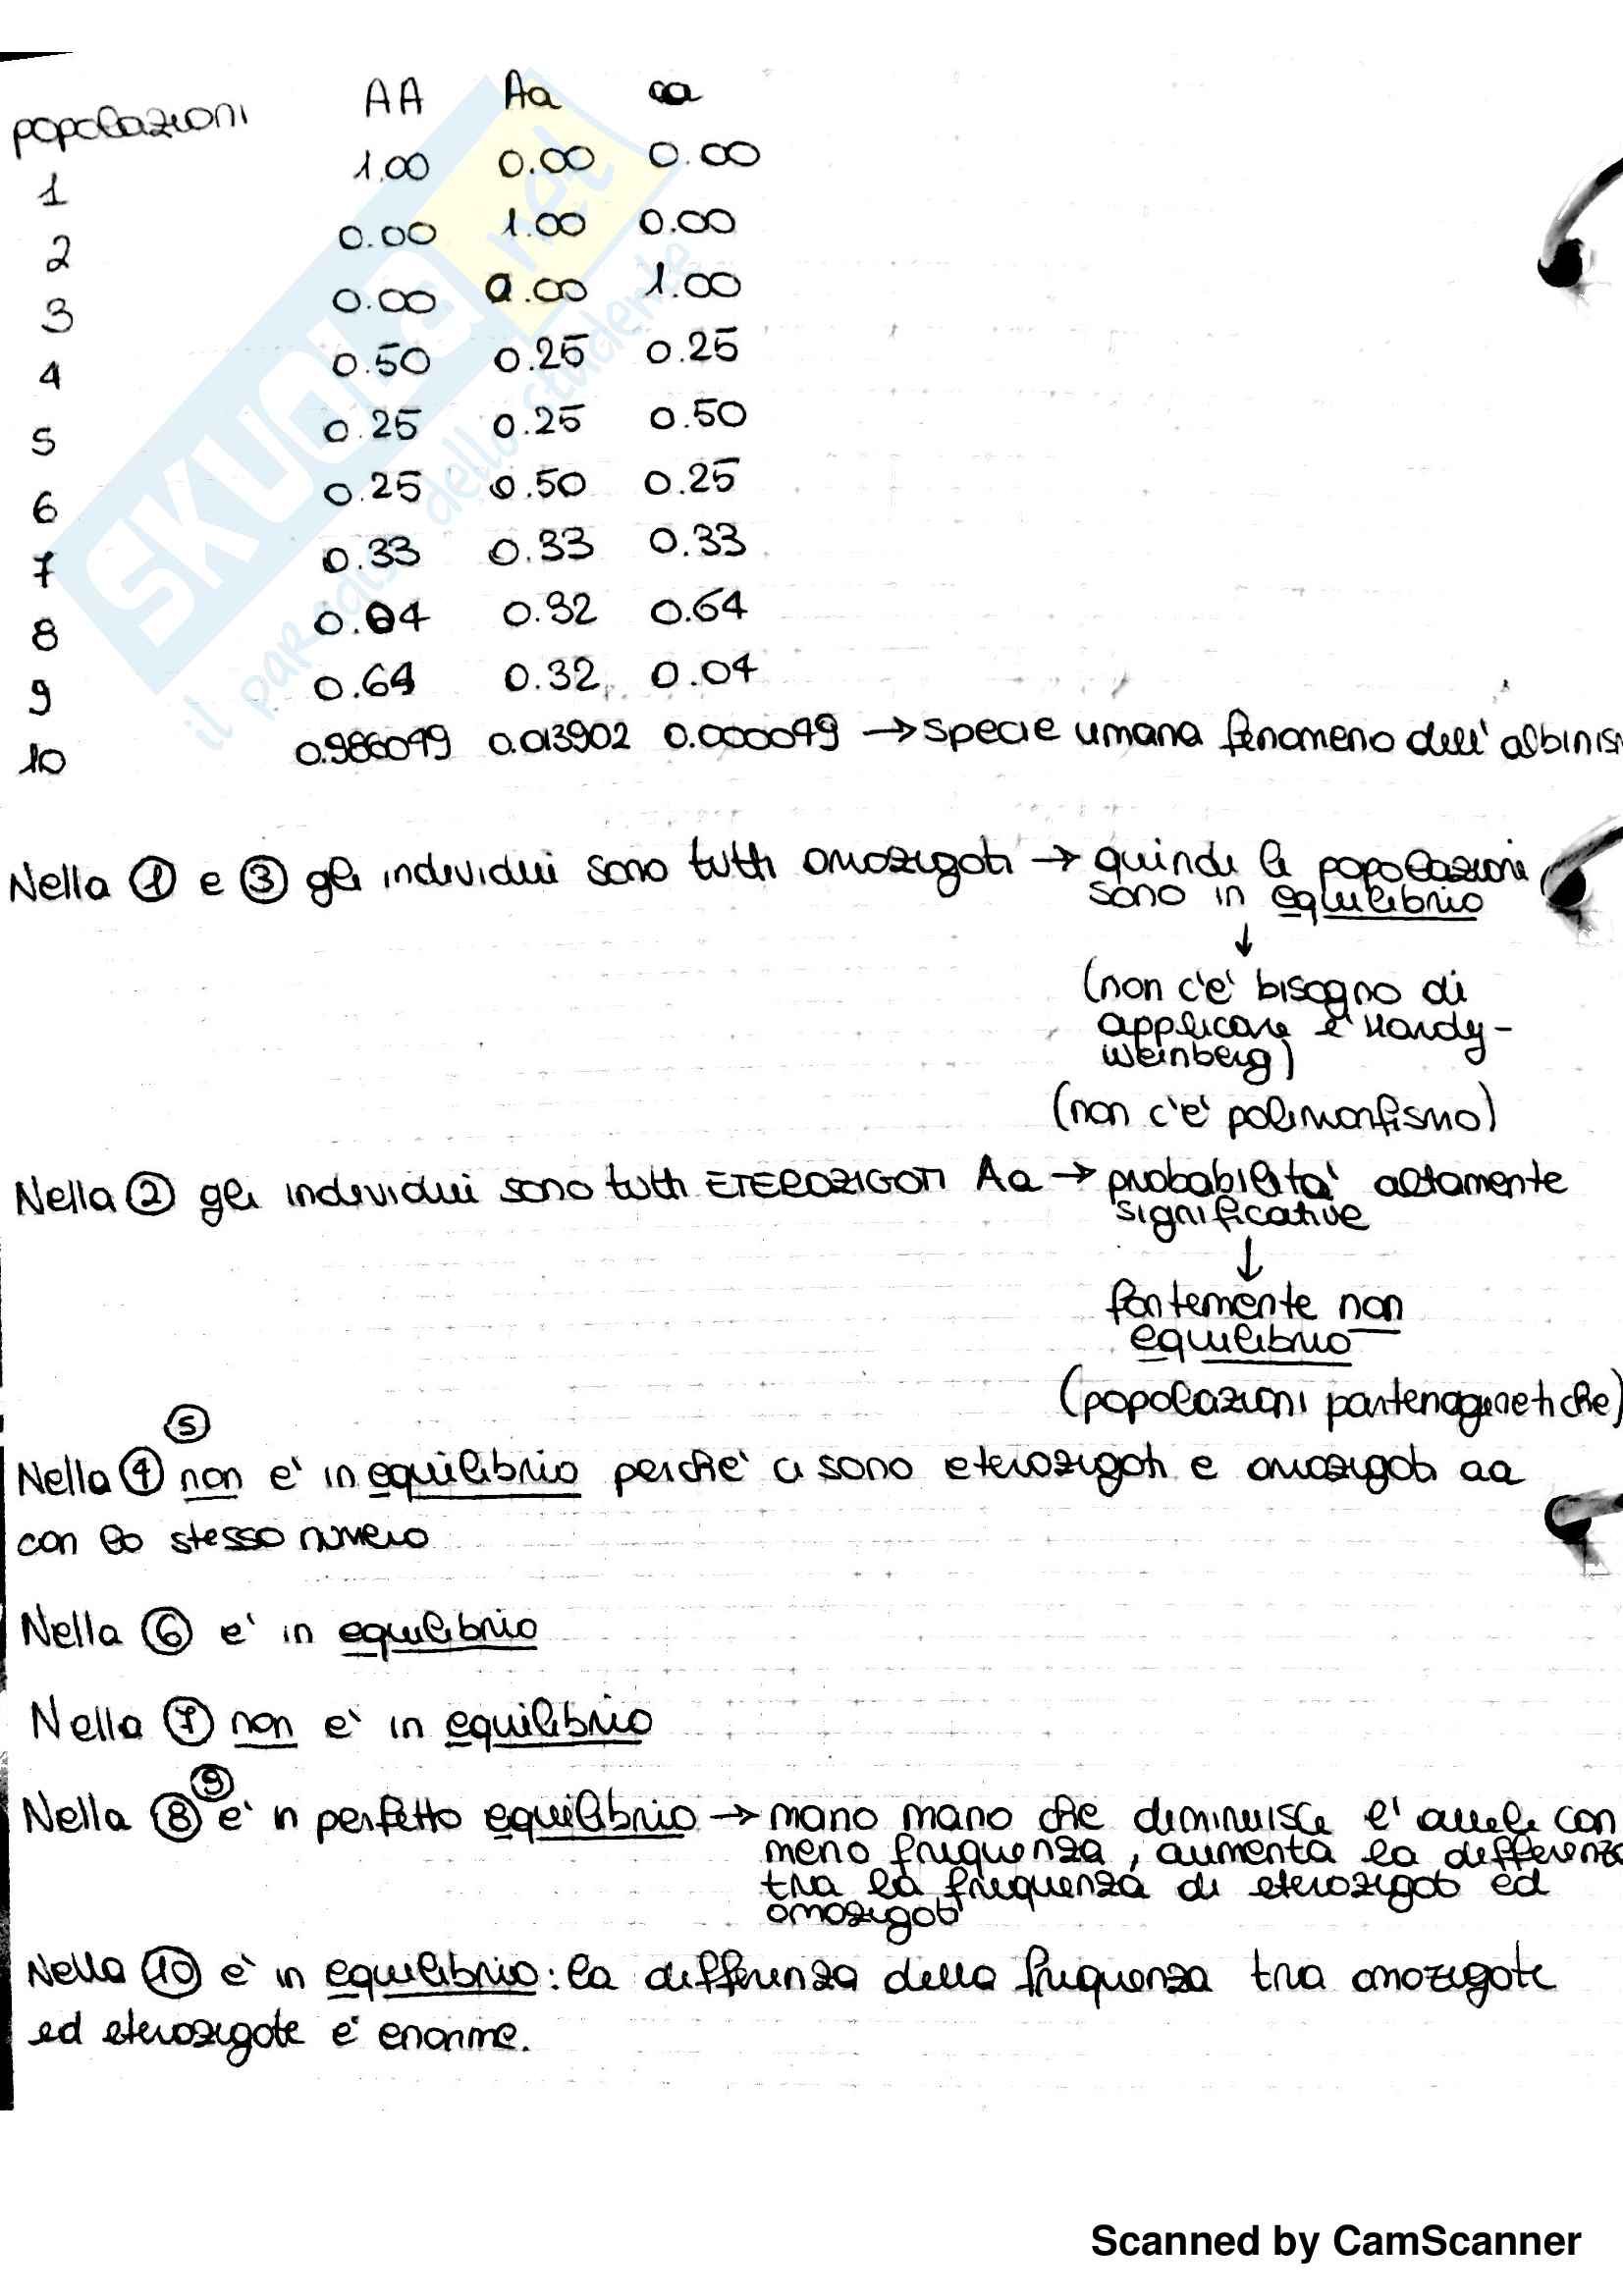 popolazioni AA Aa aa
1 1.00 0.00 0.00
2 0.00 1.00 0.00
3 0.00 0.00 1.00
4 0.50 0.25 0.25
5 0.25 0.25 0.50
6 0.25 0.50 0.25
7 0.33 0.33 0.33
8 0.04 0.32 0.64
9 0.64 0.32 0.04
10 0.986049 0.013902 0.000049 → specie umana fenomeno dell'albinis
Nella ① e ③ gli individui sono tutti omozigoti → quindi le popolazioni
sono in equilibrio
↓
(non c'e' bisogno di
applicare l'Hardy-
Weinberg)
(non c'e' polimorfismo)
Nella ② gli individui sono tutti ETEROZIGOTI Aa → probabilita' altamente
significative
↓
fortemente non
equilibrio
(popolazioni partenogenetiche)
⑤
Nella ④ non e' in equilibrio perche' ci sono eterozigoti e omozigoti aa
con lo stesso numero
Nella ⑥ e' in equilibrio
Nella ⑦ non e' in equilibrio
⑨
Nella ⑧ e' in perfetto equilibrio → mano mano che diminuisce l'allele con
meno frequenza, aumenta la differenza
tra la frequenza di eterozigoti ed
omozigoti
Nella ⑩ e' in equilibrio: la differenza della frequenza tra omozigote
ed eterozigote e' enorme.
SKUOLA.net
il paradiso dello studente
Scanned by CamScanner